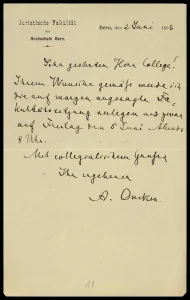 Juristische Fakultät
der
Hochschule Bern.
Bern, den 2 Juni 188
Sehr geehrter Herr College!
Ihrem Wunsche gemäss werde ich
die auf morgen angesagte Fa-
kultätssitzung verlegen und zwar
auf Freitag den 5 Juni Abends
8 Uhr.
Mit collegialischem Grusse
Ihr ergebener
A. Oncken